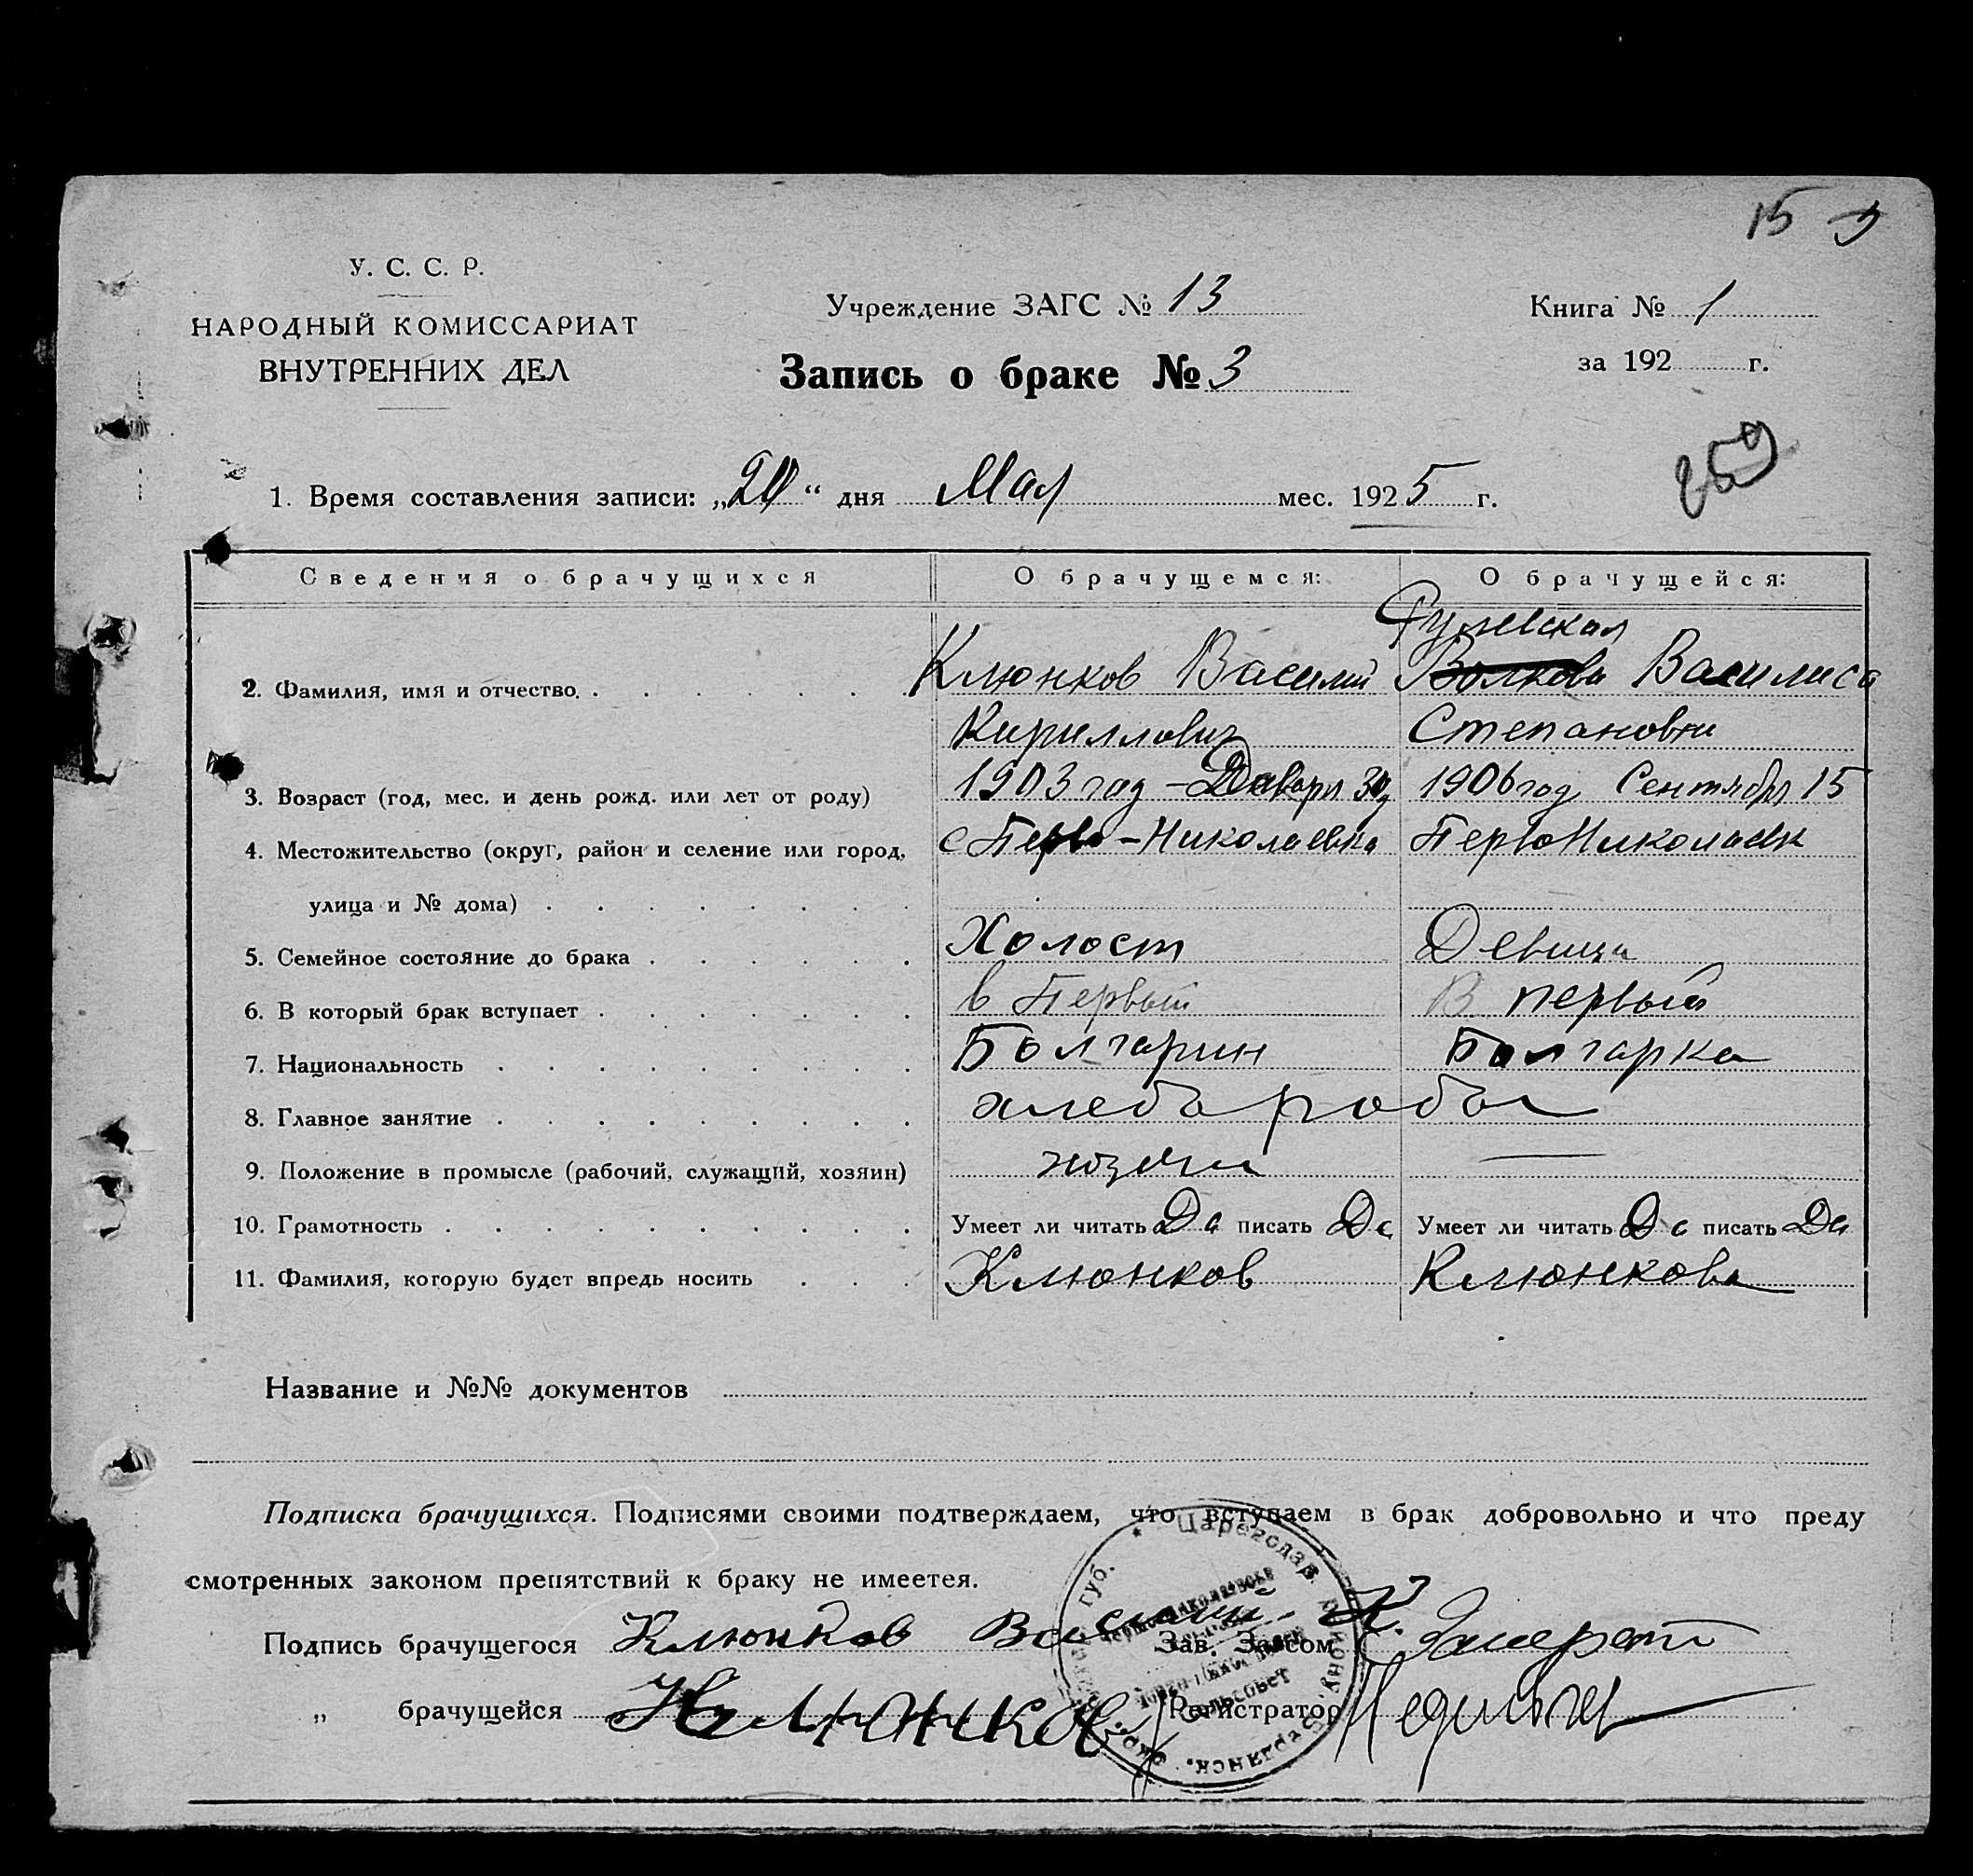 15
У. С. С. Р.
НАРОДНЫЙ КОМИССАРИАТ
ВНУТРЕННИХ ДЕЛ
Учреждение ЗАГС № 13
Запись о браке № 3
Книга № 1
за 192 г.
259
1. Время составления записи: „20“ дня Мая мес. 1925 г.
Сведения о брачущихся О брачущемся: О брачущейся:
2. Фамилия, имя и отчество Клюнков Василий Волкова Василиса
Кириллович Степановна
3. Возраст (год, мес. и день рожд. или лет от роду) 1903 год - Января 30 1906 год Сентября 15
4. Местожительство (округ, район и селение или город, с Перво-Николаевка ПервоНиколаевк
улица и № дома)
5. Семейное состояние до брака Холост Девица
6. В который брак вступает в Первый В первый
7. Национальность Болгарин Болгарка
8. Главное занятие хлеборобы
9. Положение в промысле (рабочий, служащий, хозяин) —
10. Грамотность Умеет ли читать Да писать Да Умеет ли читать Да писать Да
11. Фамилия, которую будет впредь носить Клюнков Клюнкова
Название и №№ документов
Подписка брачущихся. Подписями своими подтверждаем, что вступаем в брак добровольно и что преду
смотренных законом препятствий к браку не имеетея.
Подпись брачущегося Клюнков Василий Зав. Загсом
„ брачущейся Регистратор
Царегодар. району
сельсовет
губ.